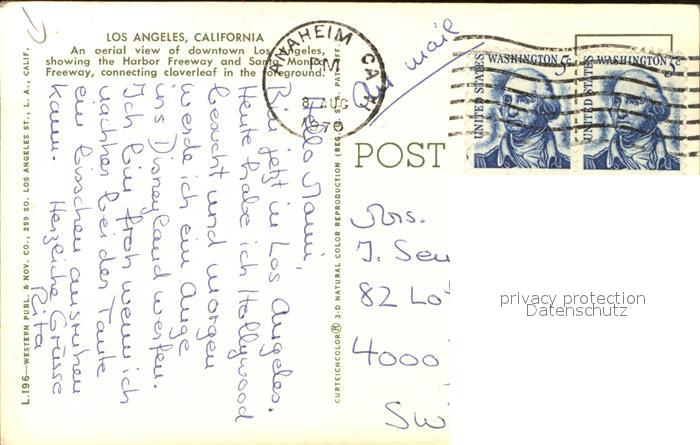 LOS ANGELES, CALIFORNIA
An aerial view of downtown Los Angeles,
showing the Harbor Freeway and Santa Monica
Freeway, connecting cloverleaf in the foreground.
Hello Mami,
Bin jetzt in Los Angeles.
Heute habe ich Hollywood
besucht und morgen
werde ich ein Auge
ins Disneyland werfen.
Ich bin froh wenn ich
nachher bei der Tante
ein bisschen ausruhen
kann. Herzliche Grüsse
Rita
L.196—WESTERN PUBL. & NOV. CO., 259 SO. LOS ANGELES ST., L. A., CALIF.
CURTEICHCOLOR® 3-D NATURAL COLOR REPRODUCTION (REG. U.S.A. PAT. OFF.)
ANAHEIM CA
PM
8 AUG
1970
mail
UNITED STATES WASHINGTON 5c
UNITED STATES WASHINGTON 5c
POST
Mrs.
J. Sen
82 Lo
4000
Sw
privacy protection
Datenschutz